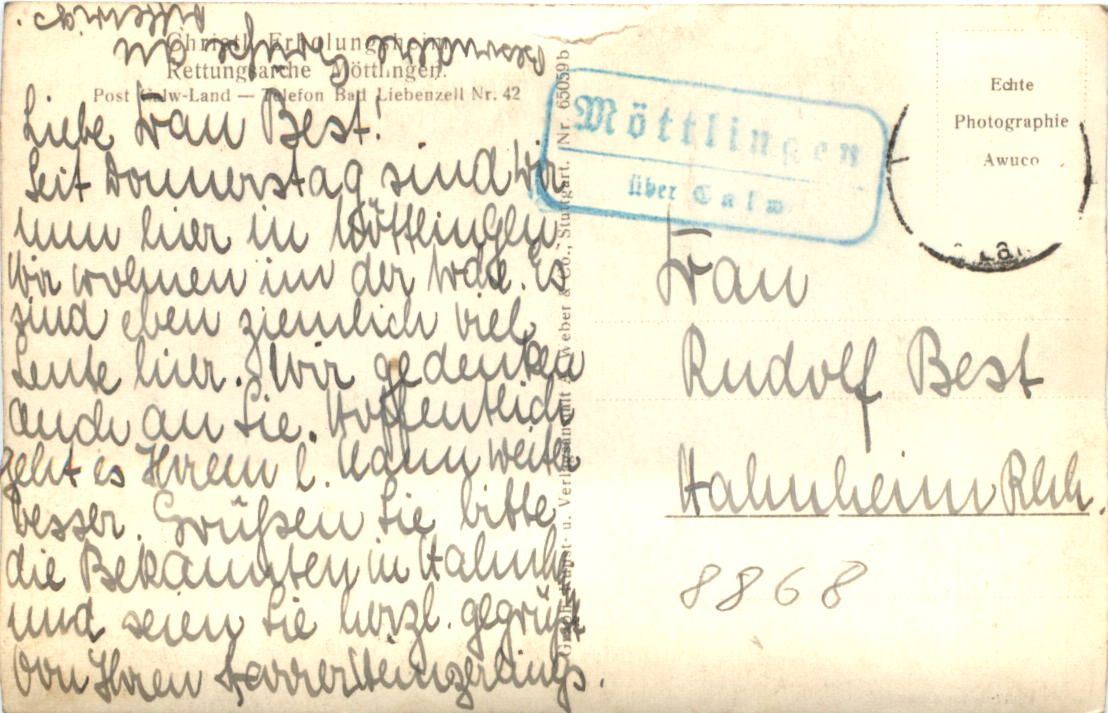 Christl. Erholungsheim
Rettungsarche Möttlingen.
Post Calw-Land — Telefon Bad Liebenzell Nr. 42
Liebe Frau Best!
Seit Donnerstag sind wir
nun hier in Möttlingen
Wir wohnen in der Arche. Es
sind eben ziemlich viel
Leute hier. Wir gedenken
auch an Sie. Hoffentlich
geht es Ihrem l. Mann weiter
besser. Grüßen Sie bitte
die Bekannten in Hahnh.
und seien Sie herzl. gegrüßt
von Ihren
Weber & Co., Stuttgart. (Nr. 65059b
Möttlingen
über Calw
Echte
Photographie
Awuco
Frau
Rudolf Best
Hahnheim Rhh.
8868